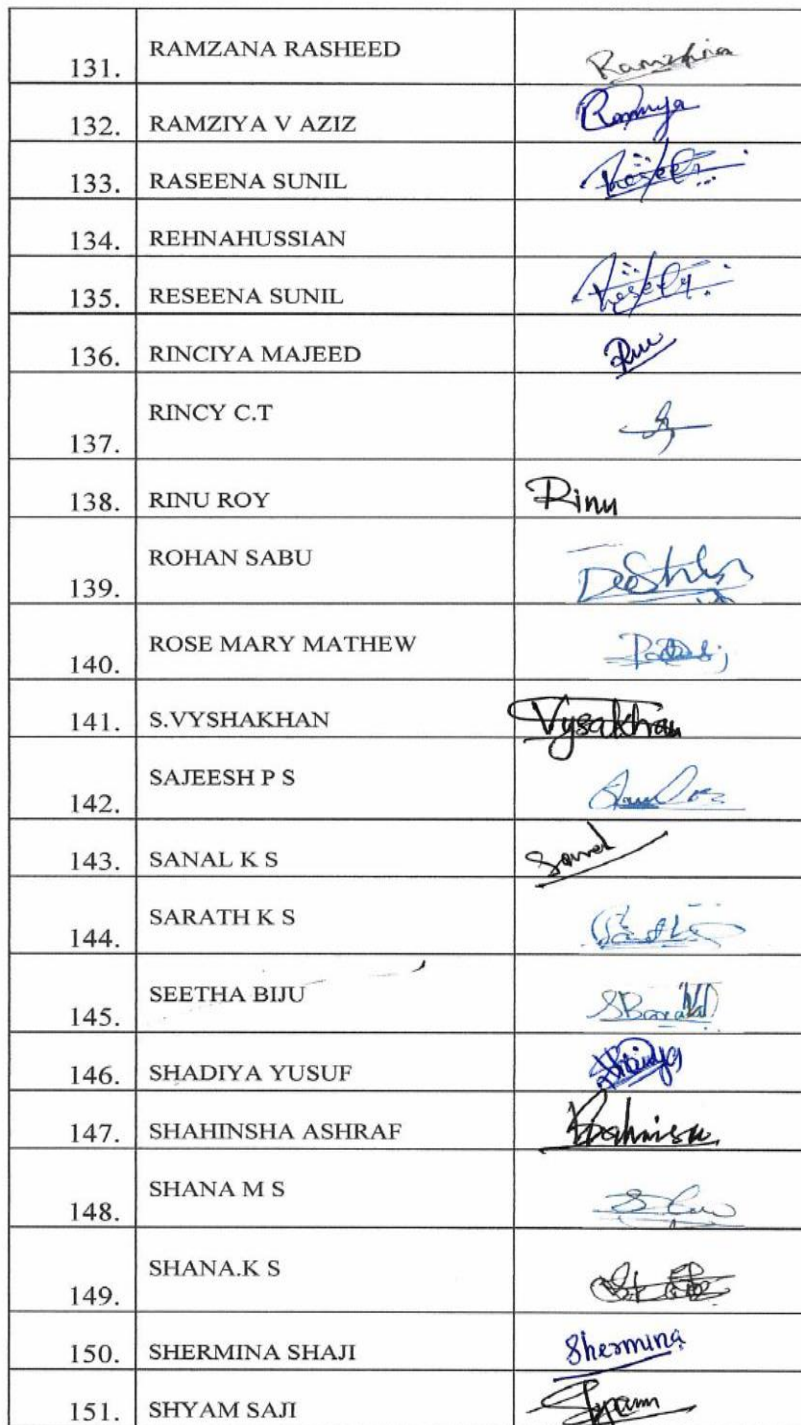 131. RAMZANA RASHEED Ramzana
132. RAMZIYA V AZIZ
133. RASEENA SUNIL
134. REHNAHUSSIAN
135. RESEENA SUNIL
136. RINCIYA MAJEED
137. RINCY C.T
138. RINU ROY Rinu
139. ROHAN SABU
140. ROSE MARY MATHEW
141. S.VYSHAKHAN Vysakhan
142. SAJEESH P S
143. SANAL K S Sanal
144. SARATH K S
145. SEETHA BIJU
146. SHADIYA YUSUF
147. SHAHINSHA ASHRAF
148. SHANA M S
149. SHANA.K S
150. SHERMINA SHAJI Shermina
151. SHYAM SAJI Shyam